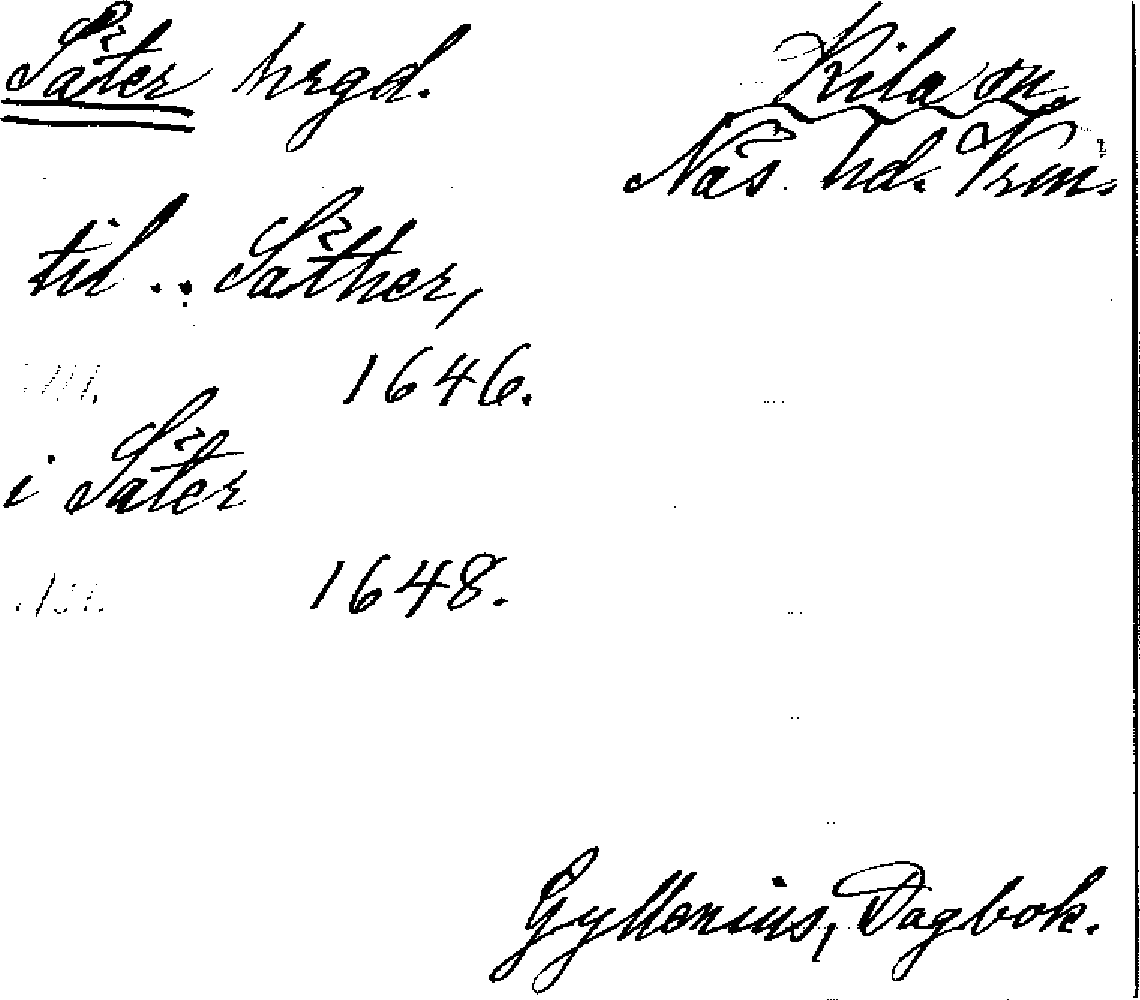 Säter hrgd.
Kila sn,
Näs hd. Vrm.
till .. Säther,
1646.
i Säter
1648.
Gyllenius, Dagbok.